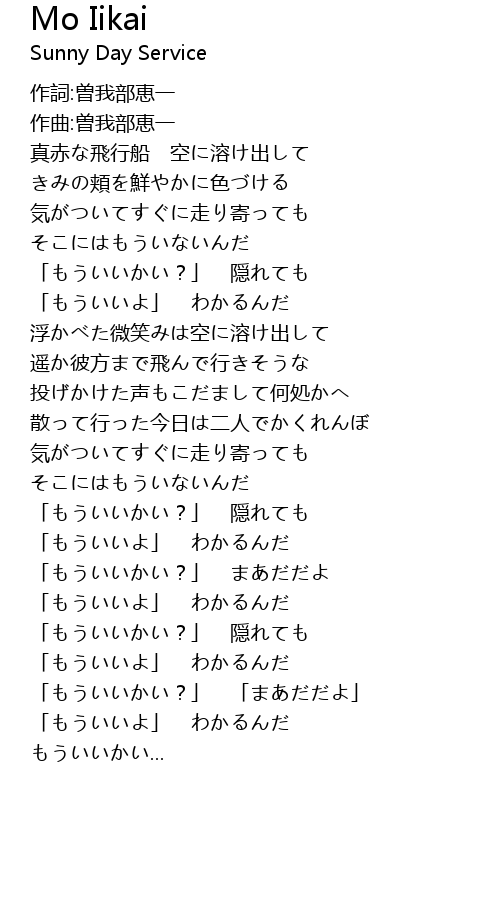 Mo Iikai
Sunny Day Service
作詞:曽我部恵一
作曲:曽我部恵一
真赤な飛行船　空に溶け出して
きみの頬を鮮やかに色づける
気がついてすぐに走り寄っても
そこにはもういないんだ
「もういいかい？」　隠れても
「もういいよ」　わかるんだ
浮かべた微笑みは空に溶け出して
遥か彼方まで飛んで行きそうな
投げかけた声もこだまして何処かへ
散って行った今日は二人でかくれんぼ
気がついてすぐに走り寄っても
そこにはもういないんだ
「もういいかい？」　隠れても
「もういいよ」　わかるんだ
「もういいかい？」　まあだだよ
「もういいよ」　わかるんだ
「もういいかい？」　隠れても
「もういいよ」　わかるんだ
「もういいかい？」　「まあだだよ」
「もういいよ」　わかるんだ
もういいかい…